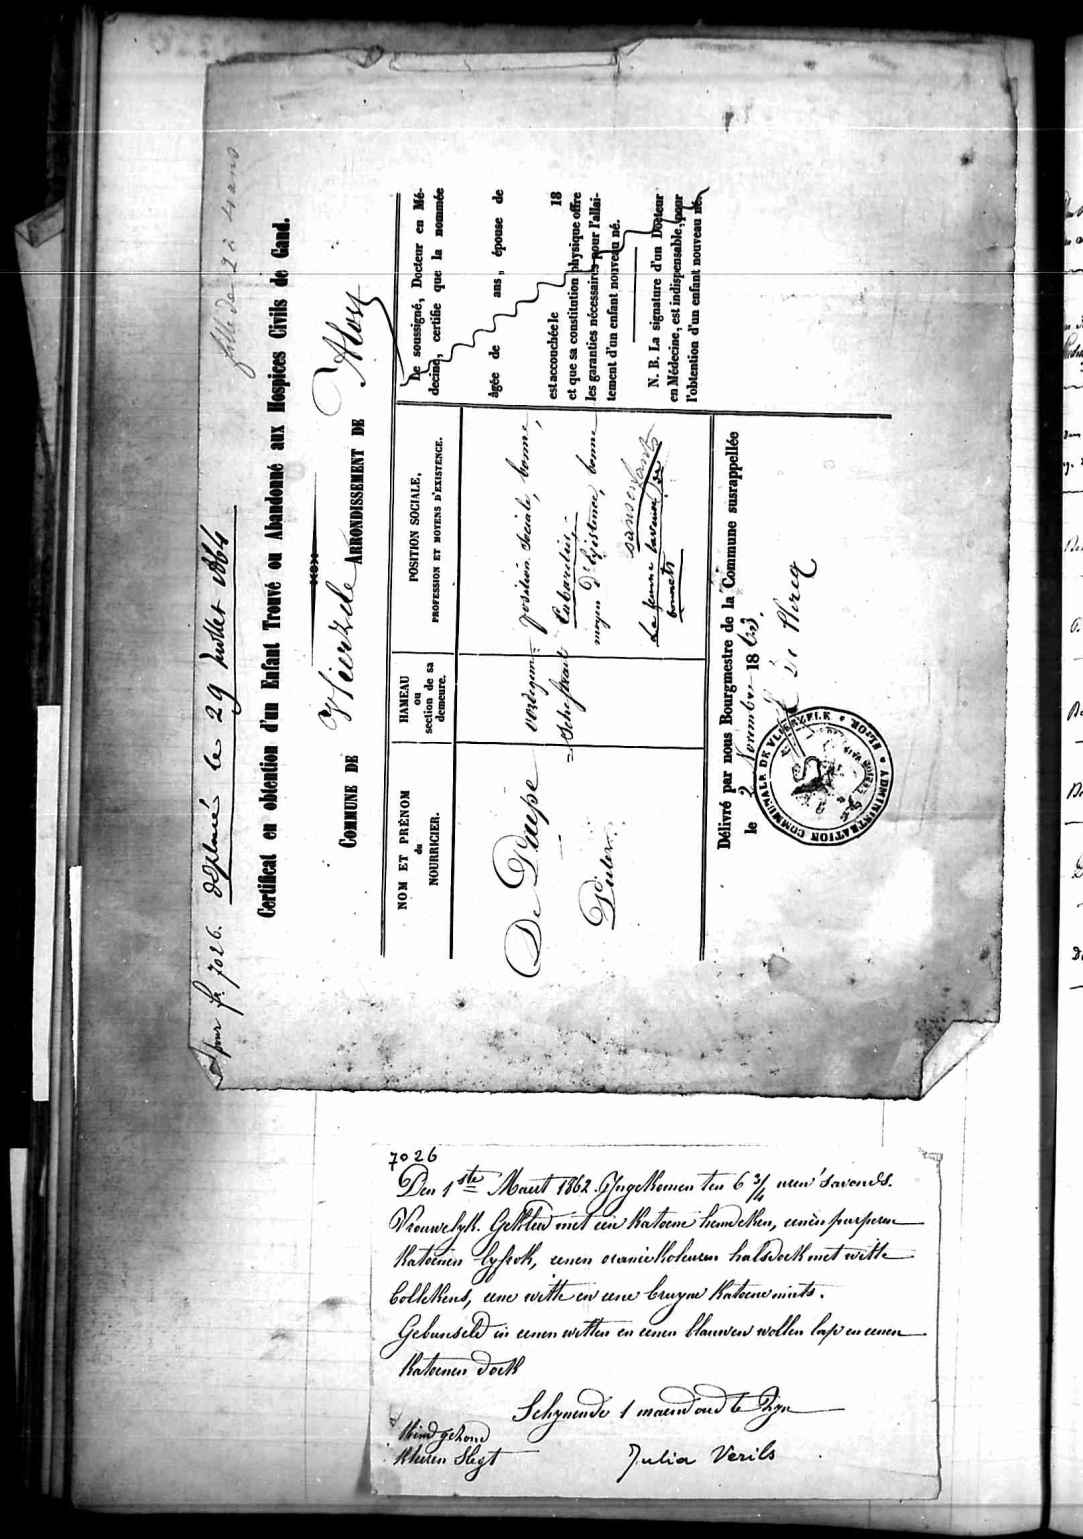 pour fr. 7026. déplacée le 29 Juillet 1864
fille de 2 à 4 ans
Certificat en obtention d'un Enfant Trouvé ou Abandonné aux Hospices Civils de Gand.
COMMUNE DE Vlierzele ARRONDISSEMENT DE Alost
NOM ET PRÉNOM
du
NOURRICIER.
HAMEAU
ou
section de sa
demeure.
POSITION SOCIALE,
PROFESSION ET MOYENS D'EXISTENCE.
De Paepe
Pieter
position sociale, bonne,
Cabaretier,
moyen d'existence, bonne
sans enfants
bonnets
Le soussigné, Docteur en Mé-
decine, certifie que la nommée
âgée de ans, épouse de
est accouchée le 18
et que sa constitution physique offre
les garanties nécessaires pour l'allai-
tement d'un enfant nouveau né.
N. B. La signature d'un Docteur
en Médecine, est indispensable, pour
l'obtention d'un enfant nouveau né.
Délivré par nous Bourgmestre de la Commune susrappellée
le 2 Novembre 1863.
ADMINISTRATION COMMUNALE DE VLIERZELE
7026
Den 1ste Maert 1862. Ingekomen ten 6 3/4 uren 'savonds.
Vrouwelyk. Gekleed met een katoene hemdeken, eenen purperen
katoenen lyfrok, eenen oraniekoleuren halsdoek met witte
bollekens, eene witte en eene bruyne katoene muts.
Gebunseld in eenen witten en eenen blauwen wollen lap en eenen
katoenen doek
Schynende 1 maend oud te Zyn
Kind gezond
kleeren Slegt
Julia Verils